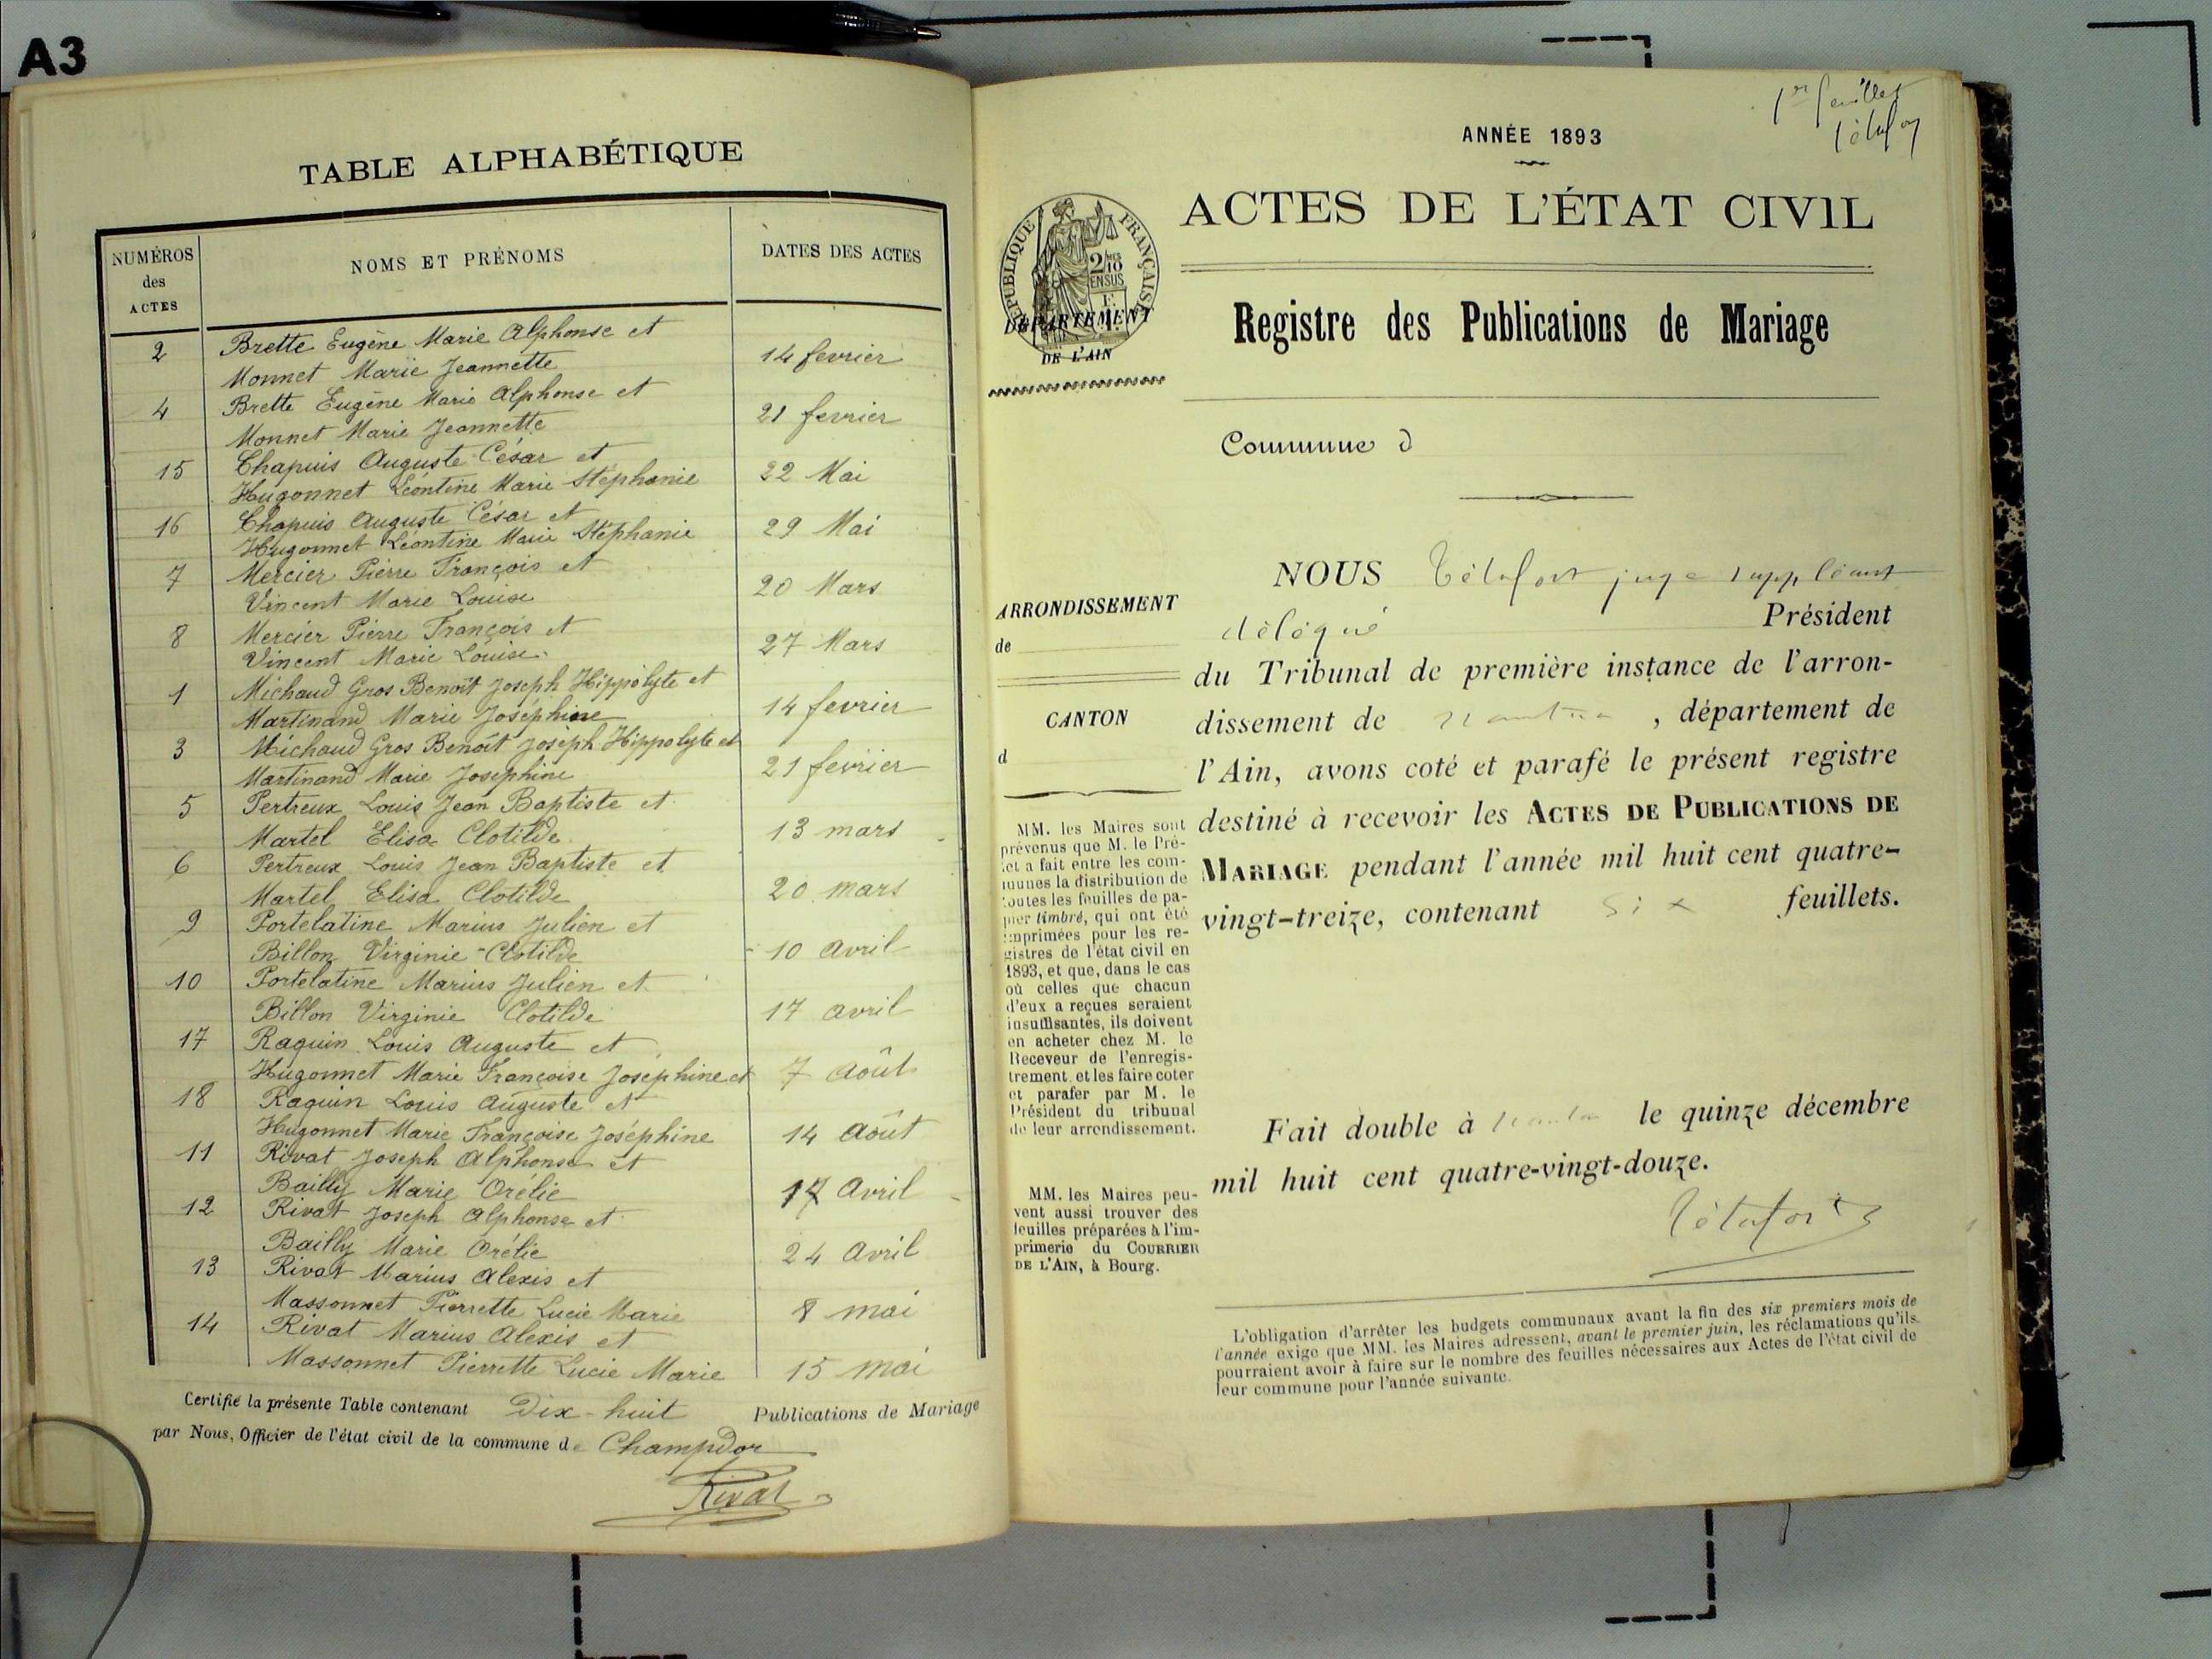 A3
TABLE ALPHABÉTIQUE
NUMÉROS des ACTES
NOMS ET PRÉNOMS
DATES DES ACTES
2 Brette Eugène Marie Alphonse et
Monnet Marie Jeannette 14 fevrier
4 Brette Eugène Marie Alphonse et
Monnet Marie Jeannette 21 fevrier
15 Chapuis Auguste César et
Hugonnet Léontine Marie Stéphanie 22 Mai
16 Chapuis Auguste César et
Hugonnet Léontine Marie Stéphanie 29 Mai
7 Mercier Pierre François et
Vincent Marie Louise 20 Mars
8 Mercier Pierre François et
Vincent Marie Louise 27 Mars
1 Michaud Gros Benoît Joseph Hippolyte et
Martinand Marie Joséphine 14 fevrier
3 Michaud Gros Benoît Joseph Hippolyte et
Martinand Marie Joséphine 21 fevrier
5 Pertreux Louis Jean Baptiste et
Martel Elisa Clotilde 13 mars
6 Pertreux Louis Jean Baptiste et
Martel Elisa Clotilde 20 mars
9 Portelatine Marius Julien et
Billon Virginie Clotilde 10 avril
10 Portelatine Marius Julien et
Billon Virginie Clotilde 17 avril
17 Raquin Louis Auguste et
Hugonnet Marie Françoise Joséphine et 7 Août
18 Raquin Louis Auguste et
Hugonnet Marie Françoise Joséphine 14 Août
11 Rivat Joseph Alphonse et
Bailly Marie Orélie 17 Avril
12 Rivat Joseph Alphonse et
Bailly Marie Orélie 24 Avril
13 Rivat Marius Alexis et
Massonnet Pierrette Lucie Marie 8 mai
14 Rivat Marius Alexis et
Massonnet Pierrette Lucie Marie 15 mai
Certifié la présente Table contenant Dix-huit Publications de Mariage
par Nous, Officier de l'état civil de la commune de Champdor
Rivat
1er feuillet
ANNÉE 1893
ACTES DE L'ÉTAT CIVIL
RÉPUBLIQUE FRANÇAISE
2/10 EN SUS
DÉPARTEMENT
DE L'AIN
Registre des Publications de Mariage
Commune d
ARRONDISSEMENT
de
CANTON
d
MM. les Maires sont
prévenus que M. le Pré-
fet a fait entre les com-
munes la distribution de
toutes les feuilles de pa-
pier timbré, qui ont été
imprimées pour les re-
gistres de l'état civil en
1893, et que, dans le cas
où celles que chacun
d'eux a reçues seraient
insuffisantes, ils doivent
en acheter chez M. le
Receveur de l'enregis-
trement et les faire coter
et parafer par M. le
Président du tribunal
de leur arrondissement.
MM. les Maires peu-
vent aussi trouver des
feuilles préparées à l'im-
primerie du COURRIER
DE L'AIN, à Bourg.
NOUS juge suppléant
délégué Président
du Tribunal de première instance de l'arron-
dissement de Nantua, département de
l'Ain, avons coté et parafé le présent registre
destiné à recevoir les ACTES DE PUBLICATIONS DE
MARIAGE pendant l'année mil huit cent quatre-
vingt-treize, contenant six feuillets.
Fait double à Nantua le quinze décembre
mil huit cent quatre-vingt-douze.
L'obligation d'arrêter les budgets communaux avant la fin des six premiers mois de
l'année exige que MM. les Maires adressent, avant le premier juin, les réclamations qu'ils
pourraient avoir à faire sur le nombre des feuilles nécessaires aux Actes de l'état civil de
leur commune pour l'année suivante.